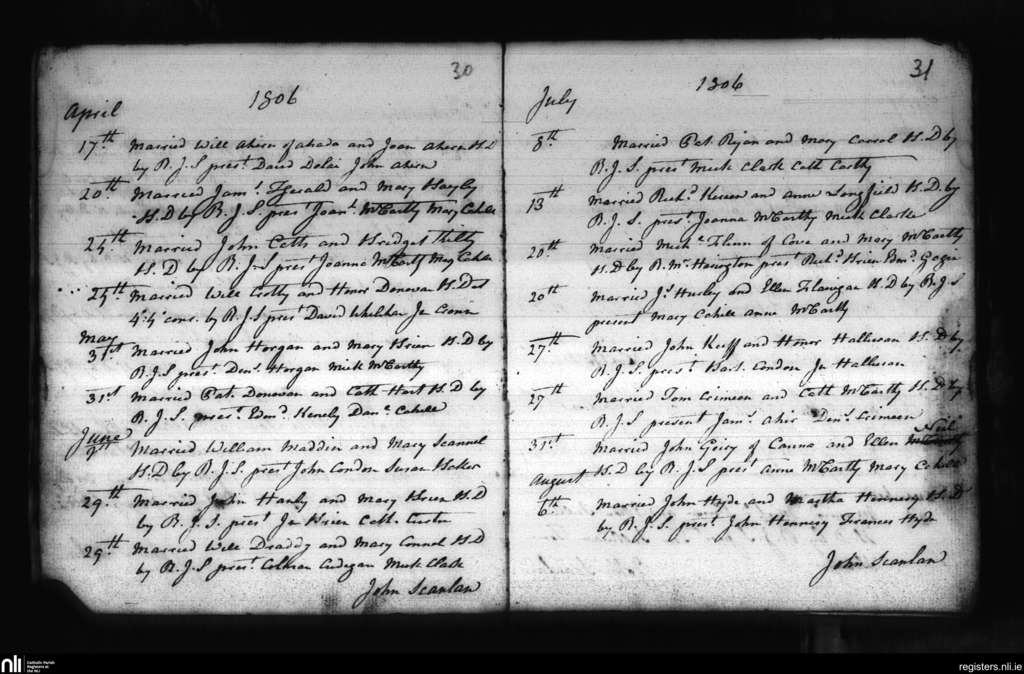 30
1806
April
17th Married Will Ahern of ahada and Joan Ahern H.D
by R. J. S prest David Dolen John Ahern
20th Married Jams Fgerald and Mary Hayly
H.D by R. J. S. prest Joana McCarthy Mary Cahill
25th Married John Cotts and Bridget
H. D by R. J. S prest Joanna McCarthy Mary Cahill
25th Married Will Crotty and Honor Donovan H.D
4: 4 conc. by R. J. S prest David Whelchan Jn
May
31st Married John Horgan and Mary Brien H.D by
R. J. S prest Dens Horgan Mick McCarthy
31st Married Pat. Donovan and Cath Hart H.D by
R. J. S. prest Edmd Kenely Danl Cahill
June
9th Married William Maddin and Mary Scannel
H.D by R. J. S. prest John Condon Susan
29th Married John Hanly and Mary Brien H.D
by R. J. S. prest Jn Brien Cath.
29th Married Will Draddy and Mary Connel H.D
by R. J. S prest Colman Cudegan Mick Clark
John Scanlan
31
1806
July
8th Married Pat. Ryan and Mary Carrol H.D by
R. J. S. prest Mick Clark Cath Carthy
13th Married Richd and Anne Longfield H.D. by
R. J. S. prest Joanna McCarthy Mick Clarke
20th Married Mick Flinn of Cove and Mary McCarthy
H.D by R. Mr Harington prest Richd Brien Edmd
20th Married Js Hurley and Ellen Flanigan H.D by R. J. S
present Mary Cahill Anne McCarthy
27th Married John Cuff and Honor Halleran H. D by
R. J. S. prest Bart. Condon Jn Halleran
27th Married Tom Crimeen and Cath McCarthy H.D by
R. J. S present Jams Aher Dens Crimeen
Neil
31st Married John of and Ellen
H.D by R. J. S prest Anne McCarthy Mary Cahill
August
6th Married John Hyde and Martha Hennesy H. D
by R. J. S. prest John Hennesy Frances Hyde
John Scanlan
nli Catholic Parish
Registers at
the NLI
registers.nli.ie